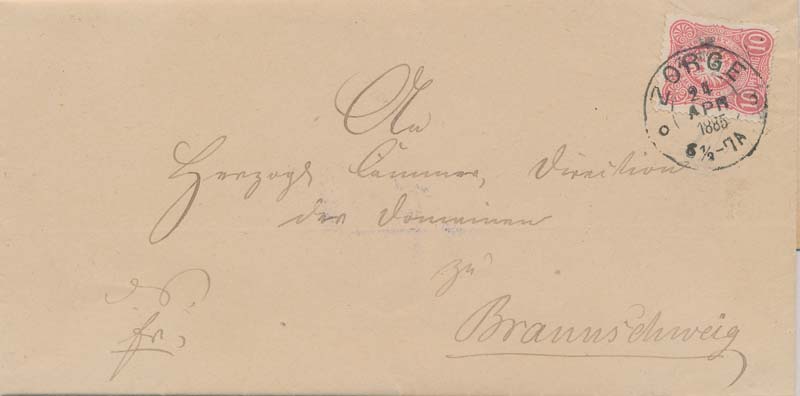 10
10
ZORGE
24
APR
1885
6½-7A
An
Herzogl Cammer, Direction
der Domainen
zu
Braunschweig
fr.